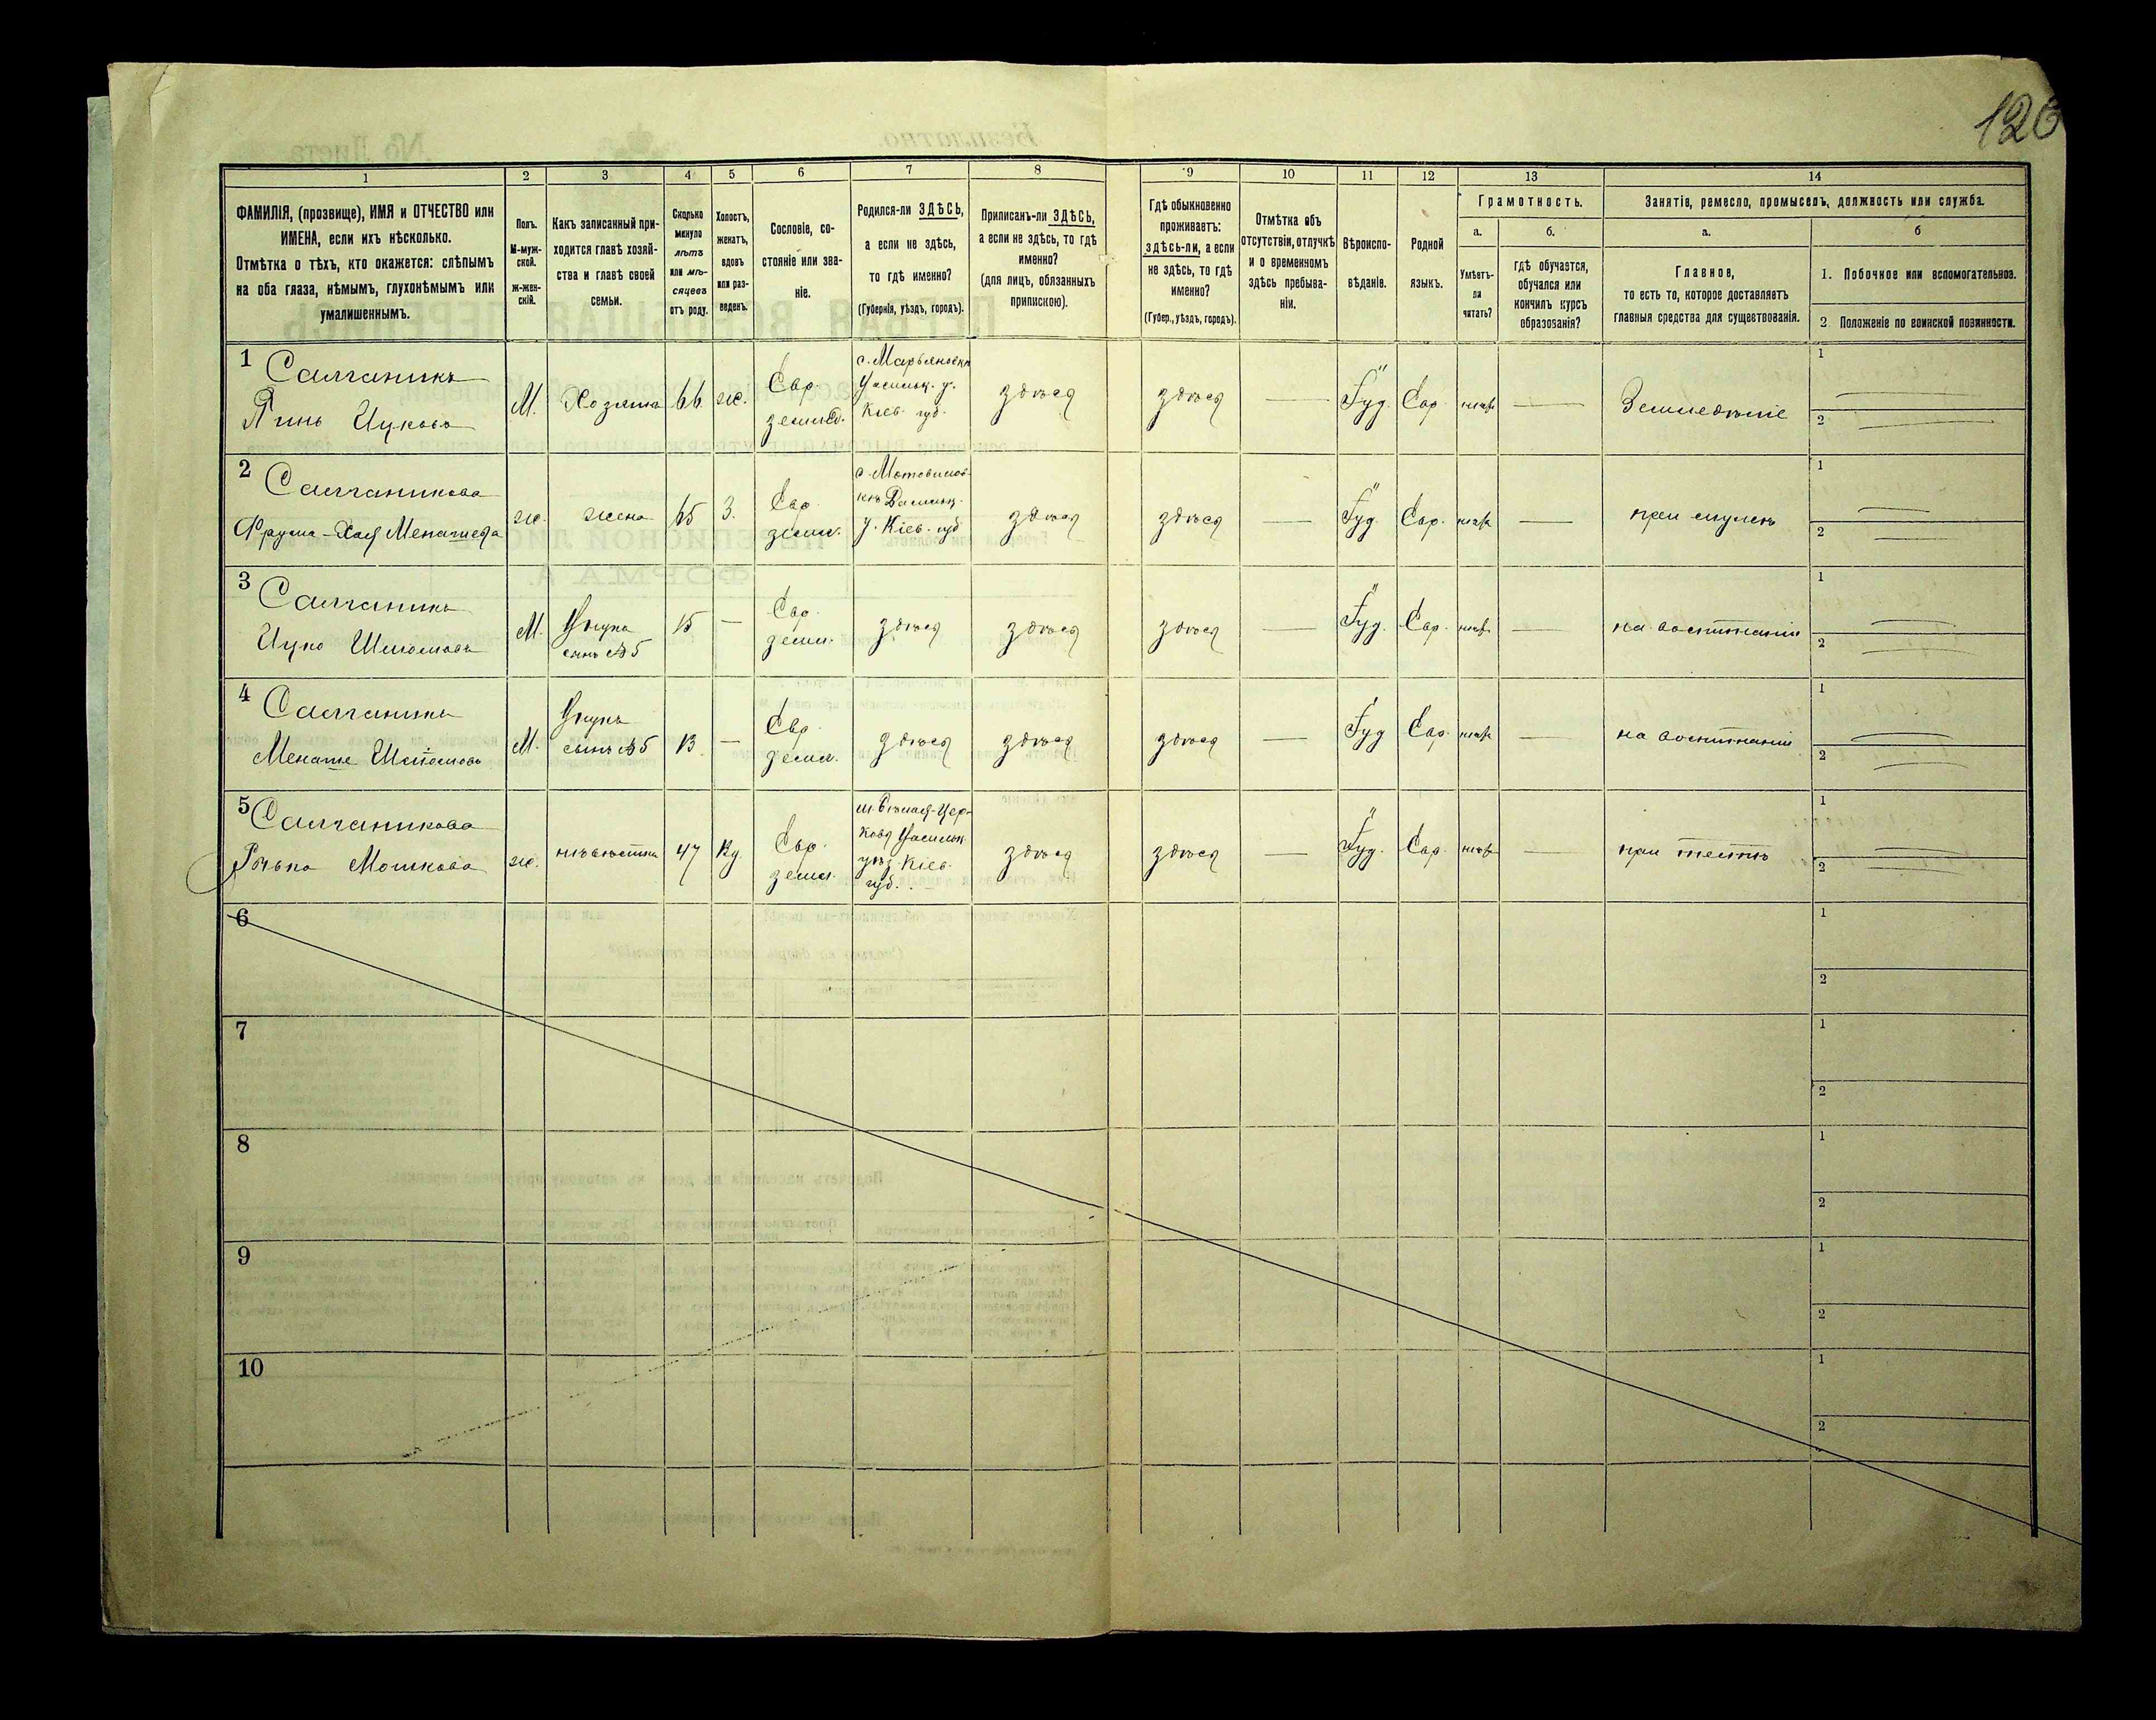 126
1
2
3
4
5
6
7
8
9
10
11
12
13
14
ФАМИЛІЯ, (прозвище), ИМЯ и ОТЧЕСТВО или
ИМЕНА, если ихъ нѣсколько.
Отмѣтка о тѣхъ, кто окажется: слѣпымъ
на оба глаза, нѣмымъ, глухонѣмымъ или
умалишеннымъ.
Полъ.
М-муж-
ской.
Ж-жен-
скій.
Какъ записанный при-
ходится главѣ хозяй-
ства и главѣ своей
семьи.
Сколько
минуло
лѣтъ
или мѣ-
сяцевъ
отъ роду.
Холостъ,
женатъ,
вдовъ
или раз-
веденъ.
Сословіе, со-
стояніе или зва-
ніе.
Родился-ли ЗДѢСЬ,
а если не здѣсь,
то гдѣ именно?
(Губернія, уѣздъ, городъ).
Приписанъ-ли ЗДѢСЬ,
а если не здѣсь, то гдѣ
именно?
(для лицъ, обязанныхъ
припискою).
Гдѣ обыкновенно
проживаетъ:
здѣсь-ли, а если
не здѣсь, то гдѣ
именно?
(Губер., уѣздъ, городъ).
Отмѣтка объ
отсутствіи, отлучкѣ
и о временномъ
здѣсь пребыва-
ніи.
Вѣроиспо-
вѣданіе.
Родной
языкъ.
Грамотность.
а.
Умѣетъ-
ли
читать?
б.
гдѣ обучается,
обучался или
кончилъ курсъ
образованія?
Занятіе, ремесло, промыселъ, должность или служба.
а.
Главное,
то есть то, которое доставляетъ
главныя средства для существованія.
б
1. Побочное или вспомогательное.
2 Положеніе по воинской повинности.
1
Салганикъ
Пинь Ицковъ
М.
Хозяинъ
66
ж.
Евр.
с. Марьяновка
Васильк. у.
Кіев. губ.
здѣся
здѣся
Іуд.
Евр
Земледѣліе
1
2
2
Салганикова
Фрума-Хая Менашева
ж.
жена
65
З.
Евр
земл.
у. Кіев. губ
здѣся
здѣся
Іуд.
Евр.
1
2
3
Салганикъ
Ицко Шліомовъ
М.
Внукъ
сынъ №5
15
Евр.
земл.
здѣся
здѣся
здѣся
Іуд.
Евр.
на воспитаніи
1
2
4
Салганикъ
Менаше Шліомовъ
М.
Внукъ
сынъ №5
13
Евр.
земл.
здѣся
здѣся
здѣся
Іуд
Евр
на воспитаніи
1
2
5
Салганикова
Мошкова
ж.
невѣстка
47
Вд.
Евр.
земл.
м. Бѣлая-Цер-
ковь Васильк.
уѣз. Кіев.
губ.
здѣся
здѣся
Іуд.
Евр.
при тестѣ
1
2
6
1
2
7
1
2
8
1
2
9
1
2
10
1
2